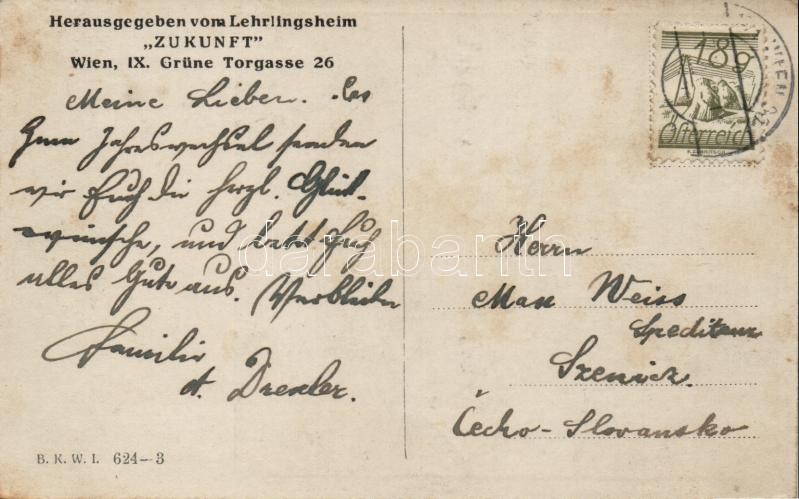 Herausgegeben vom Lehrlingsheim
„ZUKUNFT"
Wien, IX. Grüne Torgasse 26
Meine Lieben.
Zum Jahreswechsel senden
wir Euch die herzl. Glück-
wünsche, und Euch
alles Gute aus. Verbleiben
Familie
A. Drexler.
B. K. W. I. 624-3
18g
Österreich
WIEN
Herrn
Max Weiss
Spediteur
Szenicz.
Čecho-Slovansko
darabanth